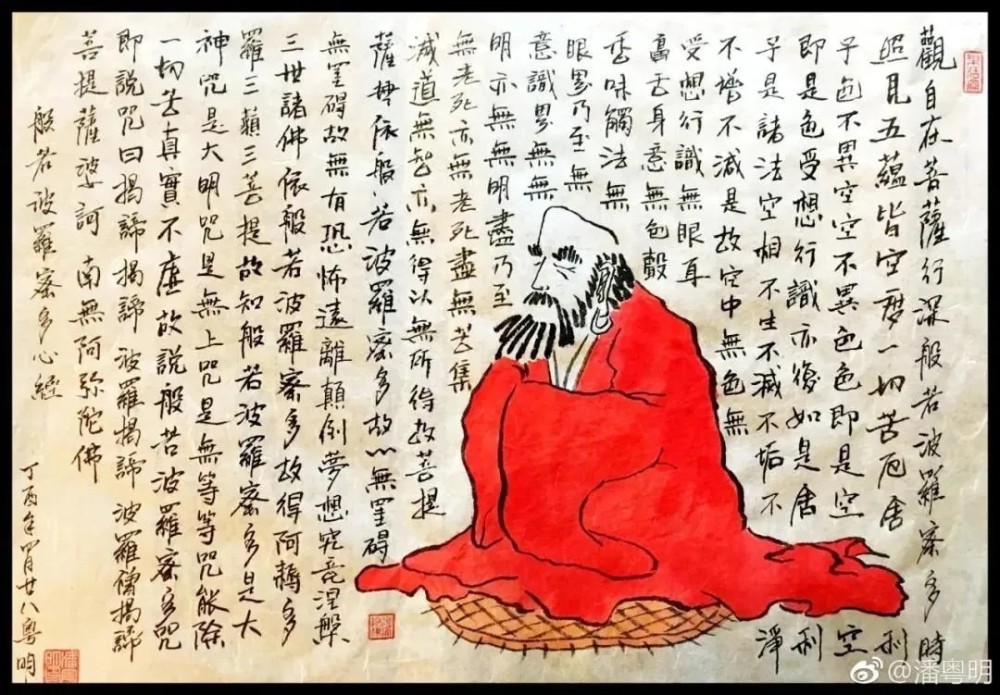 觀自在菩薩行深般若波羅蜜多時
照見五蘊皆空度一切苦厄舍利
子色不異空空不異色色即是空空
即是色受想行識亦復如是舍利
子是諸法空相不生不滅不垢不淨
不增不減是故空中無色無
受想行識無眼耳
鼻舌身意無色聲
香味觸法無
眼界乃至無
意識界無無
明亦無無明盡乃至
無老死亦無老死盡無苦集
滅道無智亦無得以無所得故菩提
薩埵依般若波羅蜜多故心無罣碍
無罣碍故無有恐怖遠離顛倒夢想究竟涅槃
三世諸佛依般若波羅蜜多故得阿耨多
羅三藐三菩提故知般若波羅蜜多是大
神咒是大明咒是無上咒是無等等咒能除
一切苦真實不虛故說般若波羅蜜多咒
即說咒曰揭諦揭諦波羅揭諦波羅僧揭諦
菩提薩婆訶 南無阿弥陀佛
般若波羅蜜多心經
丁酉年四月廿八粵明
@潘粤明